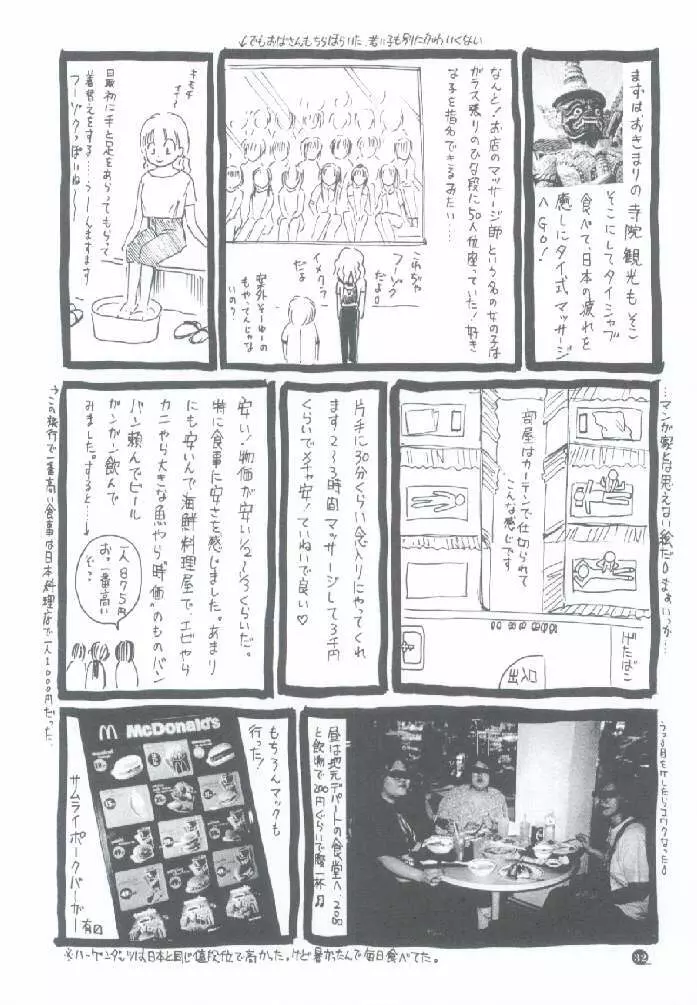 ↓でもおばさんもちらほらいた、若い子も別にかわいくない
まずはおきまりの寺院観光もそこ
そこにしてタイシャブ
食べて、日本の疲れを
癒しにタイ式マッサージ
へGO!
なんと!お店のマッサージ師という名の女の子は
ガラス張りのひな段に50人位座っていた!好き
な子を指名できるみたい…
これじゃ
フーゾク
だよ。
イメクラ
だよ
案外そーゆーの
もやってんじゃな
いの?
キモチ
いー
最初に手と足をあらってもらって
着替えをする…うーんますます
フーゾクっぽいね〜
…マンガ家とは思えない絵だ。まぁいっか…
部屋はカーテンで仕切られて
こんな感じです
げたばこ
出入口
片手に30分くらい念入りにやってくれ
ます2〜3時間マッサージして3千円
くらいでメチャ安!ていねいで良い♡
安い!物価が安い1/2〜1/3くらいだ。
特に食事に安さを感じました。あまり
にも安いんで海鮮料理屋で、エビやら
カニやら大きな魚やら"時価"のものバン
バン頼んでビール
ガンガン飲んで
みました。すると…→
一人875円
お。一番高い
ぞっ?
→この旅行で一番高い食事は日本料理店で一人1000円だった。
うつる目を消したらコワクなった。
昼は地元デパートの食堂へ200
と飲物で200円ぐらいで腹一杯♫
もちろんマックも
行った!
McDonald's
サムライポークバーガー
有。
※ハーゲンダッツは日本と同じ値段位で高かった。けど暑かったんで毎日食べてた。
32